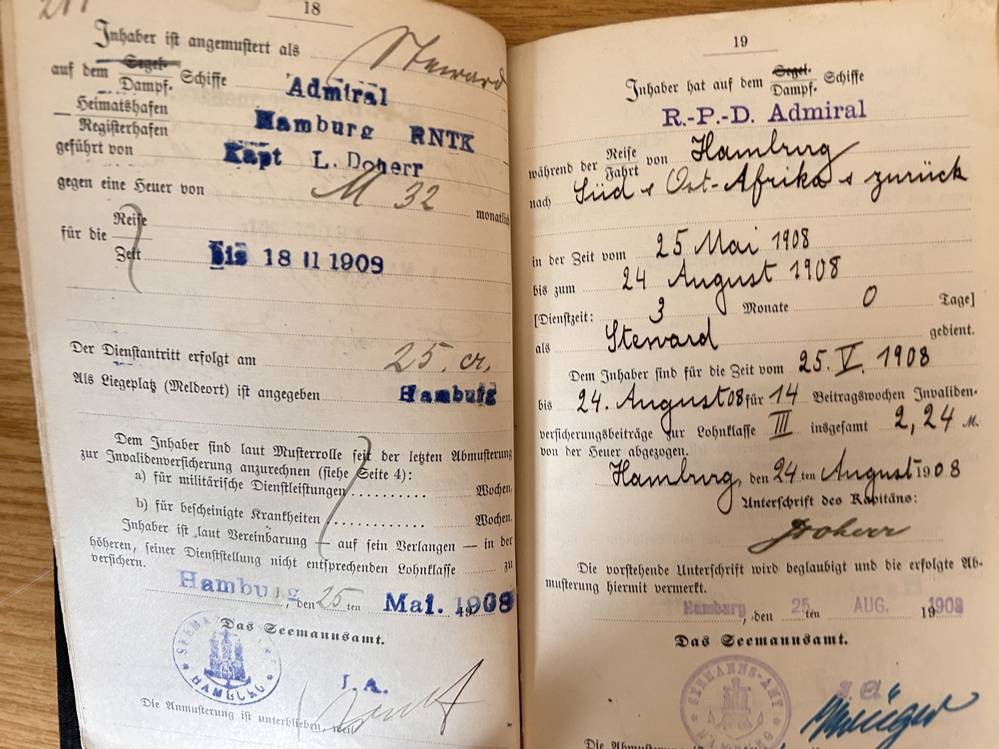 18
Inhaber ist angemustert als Steward
auf dem Segel- Dampf- Schiffe Admiral
Heimatshafen
Registerhafen Hamburg RNTK
geführt von Kapt L. Doherr
gegen eine Heuer von M 32 monatlich
für die Reise
Zeit Bis 18 II 1909
Der Dienstantritt erfolgt am 25. cr.
Als Liegeplatz (Meldeort) ist angegeben Hamburg
Dem Inhaber sind laut Musterrolle seit der letzten Abmusterung
zur Invalidenversicherung anzurechnen (siehe Seite 4):
a) für militärische Dienstleistungen .......... Wochen,
b) für bescheinigte Krankheiten ............ Wochen.
Inhaber ist laut Vereinbarung — auf sein Verlangen — in der
höheren, seiner Dienststellung nicht entsprechenden Lohnklasse zu
versichern.
Hamburg, den 25 ten Mai. 1908
Das Seemannsamt.
SEEMANNS-AMT HAMBURG
I. A.
Die Anmusterung ist unterblieben, weil
19
Inhaber hat auf dem Segel- Dampf- Schiffe
R.-P.-D. Admiral
während der Reise Fahrt von Hamburg
nach Süd & Ost-Afrika & zurück
in der Zeit vom 25 Mai 1908
bis zum 24 August 1908
[Dienstzeit: 3 Monate 0 Tage]
als Steward gedient.
Dem Inhaber sind für die Zeit vom 25. V. 1908
bis 24. August 08 für 14 Beitragswochen Invaliden-
versicherungsbeiträge zur Lohnklasse III insgesamt 2,24 M.
von der Heuer abgezogen.
Hamburg, den 24 ten August 1908
Unterschrift des Kapitäns:
Doherr
Die vorstehende Unterschrift wird beglaubigt und die erfolgte Ab-
musterung hiermit vermerkt.
Hamburg, den 25 ten AUG. 1908
Das Seemannsamt.
SEEMANNS-AMT HAMBURG